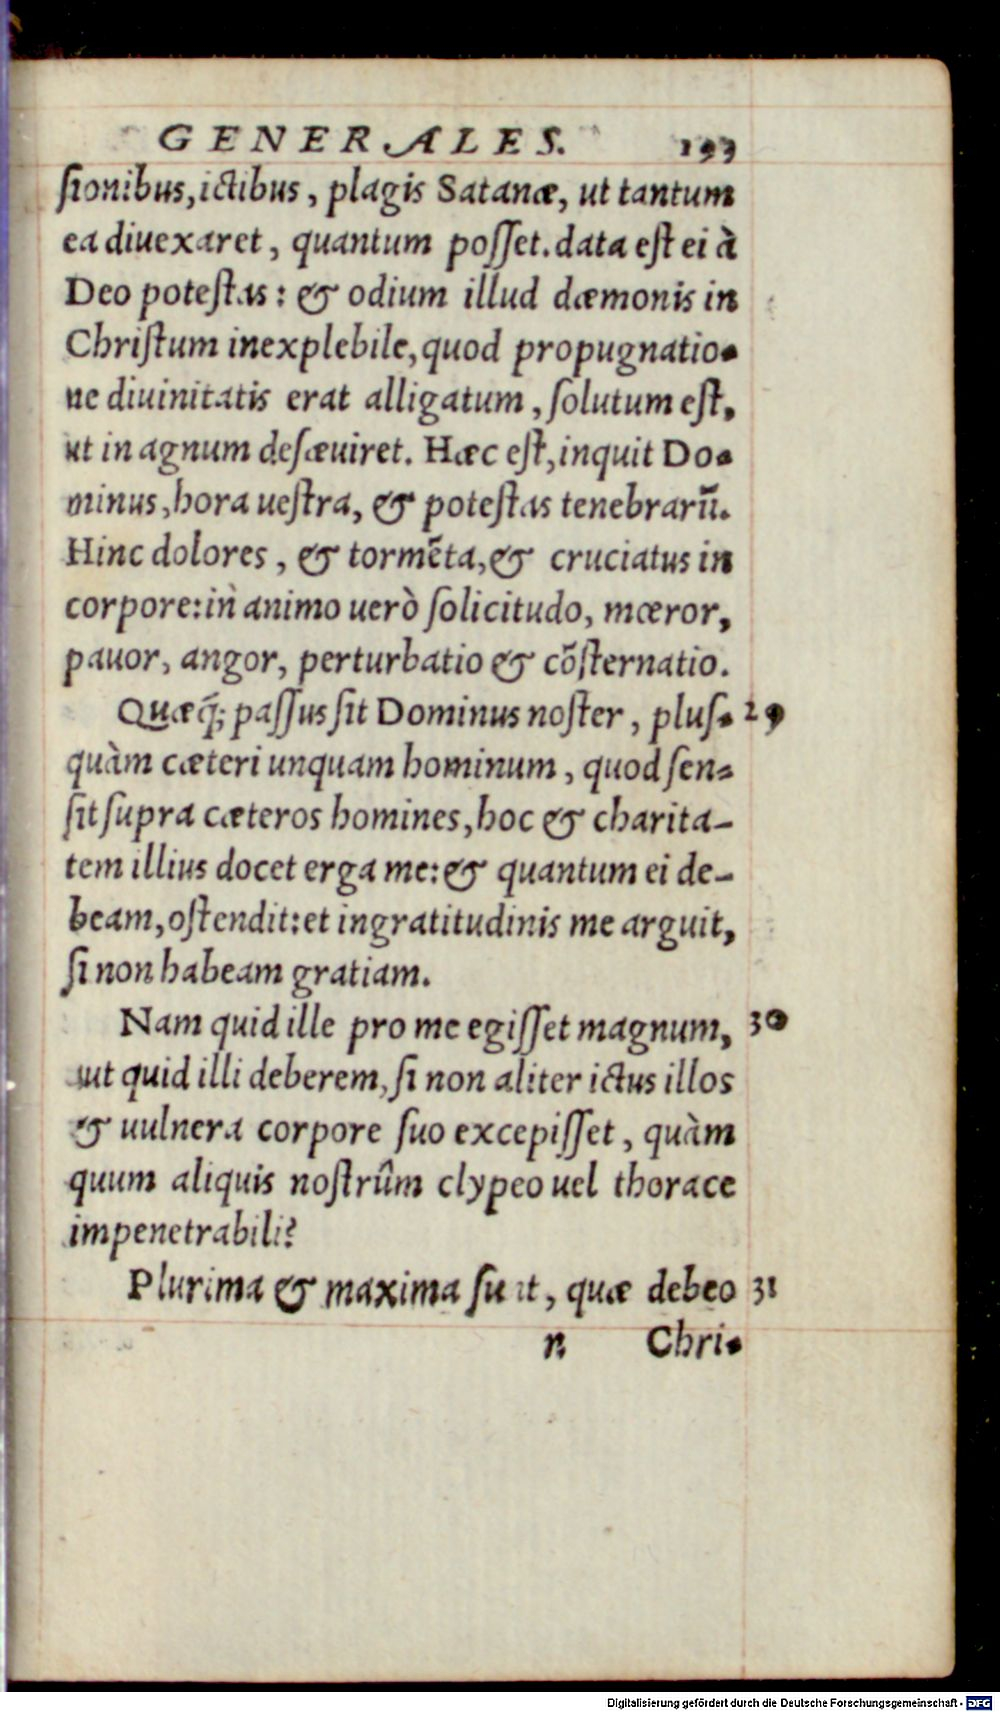 GENERALES. 193
ſionibus, ictibus, plagis Satanæ, ut tantum
ea diuexaret, quantum poſſet. data eſt ei à
Deo poteſtas: & odium illud dæmonis in
Chriſtum inexplebile, quod propugnatio-
ne diuinitatis erat alligatum, ſolutum eſt,
ut in agnum deſæuiret. Hæc eſt, inquit Do-
minus, hora ueſtra, & poteſtas tenebrarū.
Hinc dolores, & tormēta, & cruciatus in
corpore: in animo uerò ſolicitudo, mœror,
pauor, angor, perturbatio & cōſternatio.
Quæq̃; paſſus ſit Dominus noſter, pluſ- 29
quàm cæteri unquam hominum, quod ſen-
ſit ſupra cæteros homines, hoc & charita-
tem illius docet erga me: & quantum ei de-
beam, oſtendit: et ingratitudinis me arguit,
ſi non habeam gratiam.
Nam quid ille pro me egiſſet magnum, 30
aut quid illi deberem, ſi non aliter ictus illos
& uulnera corpore ſuo excepiſſet, quàm
quum aliquis noſtrûm clypeo uel thorace
impenetrabili?
Plurima & maxima ſunt, quæ debeo 31
n Chri-
Digitalisierung gefördert durch die Deutsche Forschungsgemeinschaft - DFG